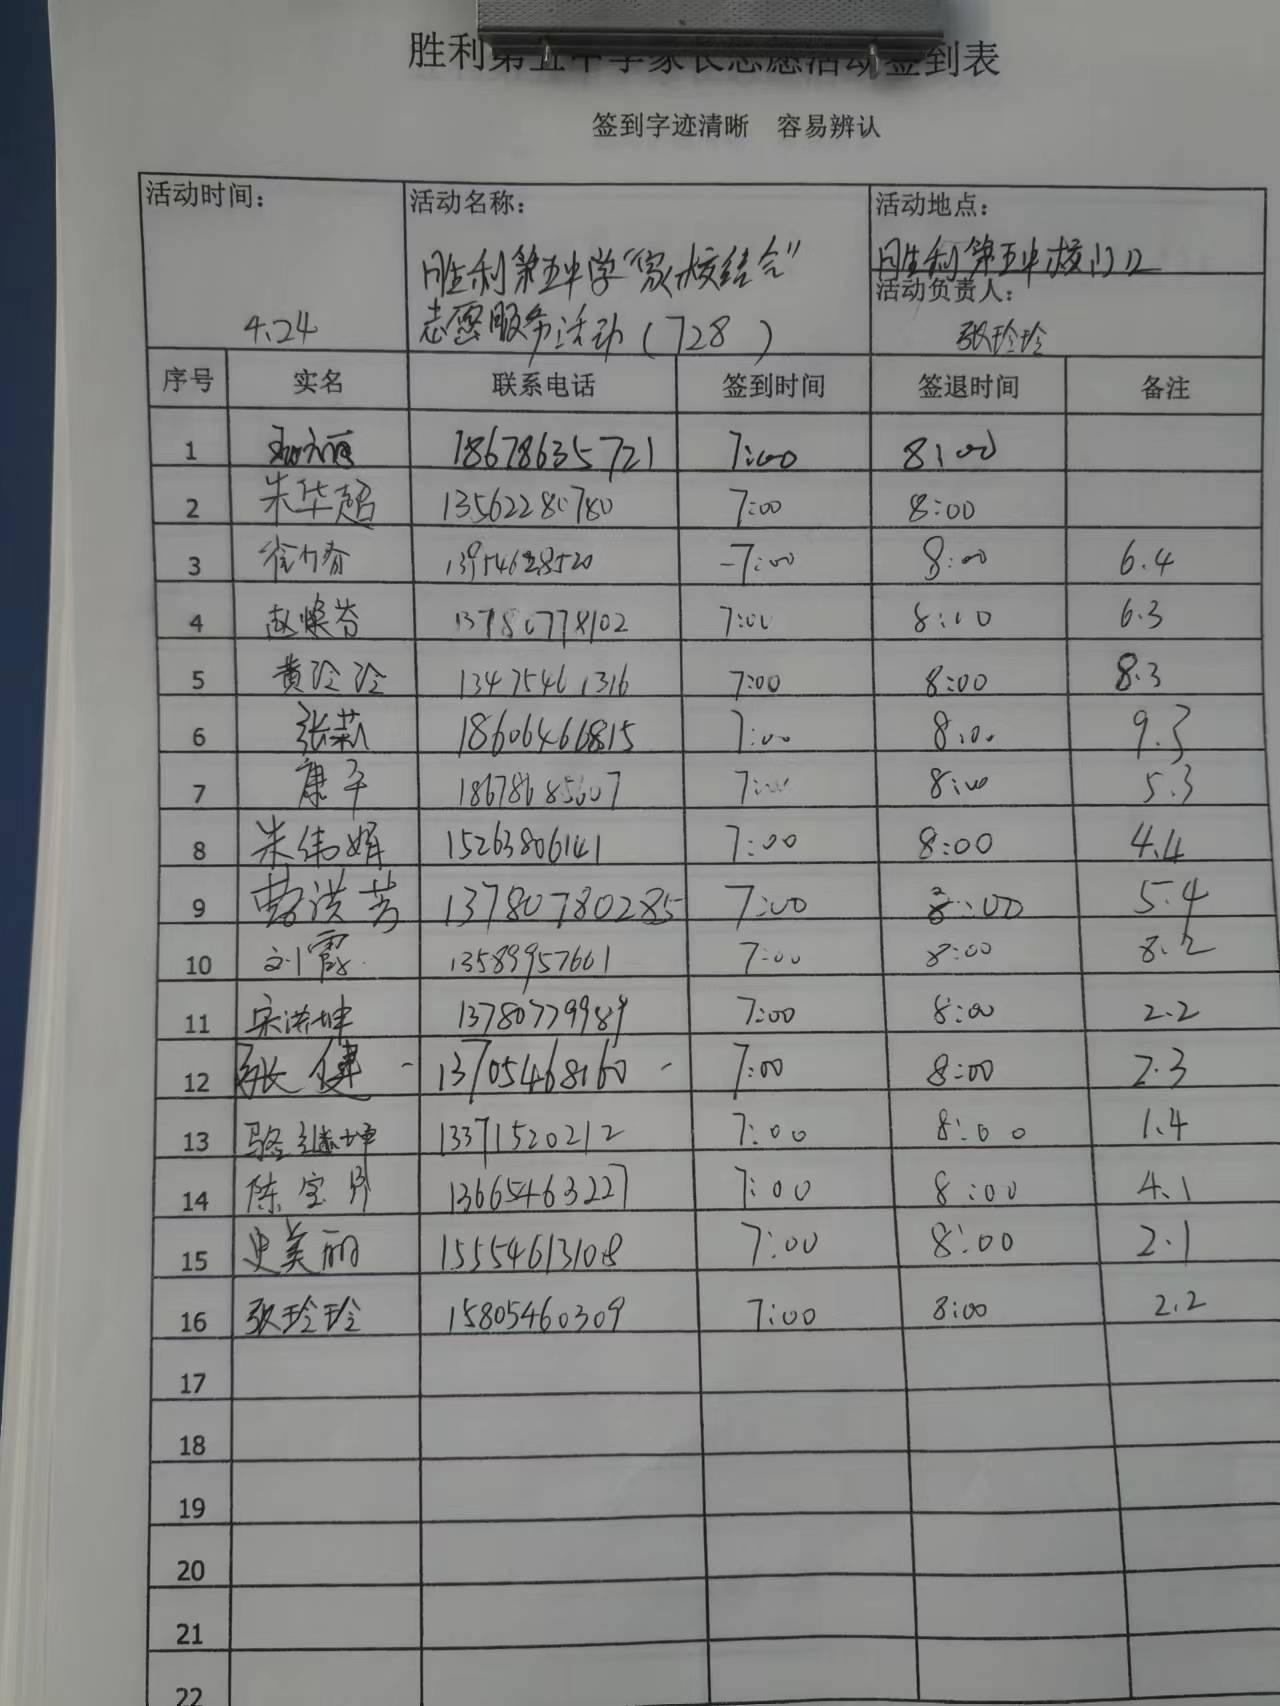 胜利第五中学家长志愿活动签到表
签到字迹清晰 容易辨认
活动时间: 活动名称: 活动地点:
胜利第五中学“家校结合” 胜利第五中校门口
活动负责人:
4.24 志愿服务活动(728) 张玲玲
序号 实名 联系电话 签到时间 签退时间 备注
1 18678635721 7:00 8:00
2 朱华超 13562280780 7:00 8:00
3 13954628520 7:00 8:00 6.4
4 赵焕芬 13780778102 7:00 8:00 6.3
5 黄玲玲 13475461316 7:00 8:00 8.3
6 张莉 18606466815 7:00 8:00 9.3
7 康平 18678685607 7:00 8:00 5.3
8 朱伟娟 15263806141 7:00 8:00 4.4
9 曹洪芳 13780780285 7:00 8:00 5.4
10 刘霞 13589957661 7:00 8:00 8.2
11 宋洪坤 13780779989 7:00 8:00 2.2
12 张健 13705468160 7:00 8:00 2.3
13 骆继坤 13371520212 7:00 8:00 1.4
14 陈宝 13665463227 7:00 8:00 4.1
15 史美丽 15554613108 7:00 8:00 2.1
16 张玲玲 15805460309 7:00 8:00 2.2
17
18
19
20
21
22